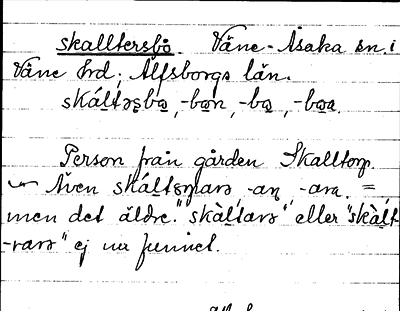 skalltersbo. Väne-Åsaka sn. i
Väne hd; Älfsborgs län.
skáltəʂbo̤, -bo̤n, -bo̤, -bo̤a.
Person från gården Skalltorp.
Även skáltəʂmarə -an, -ara. =,
men det äldre "skàltarə" eller "skàlt-
-varə" ej nu funnet.